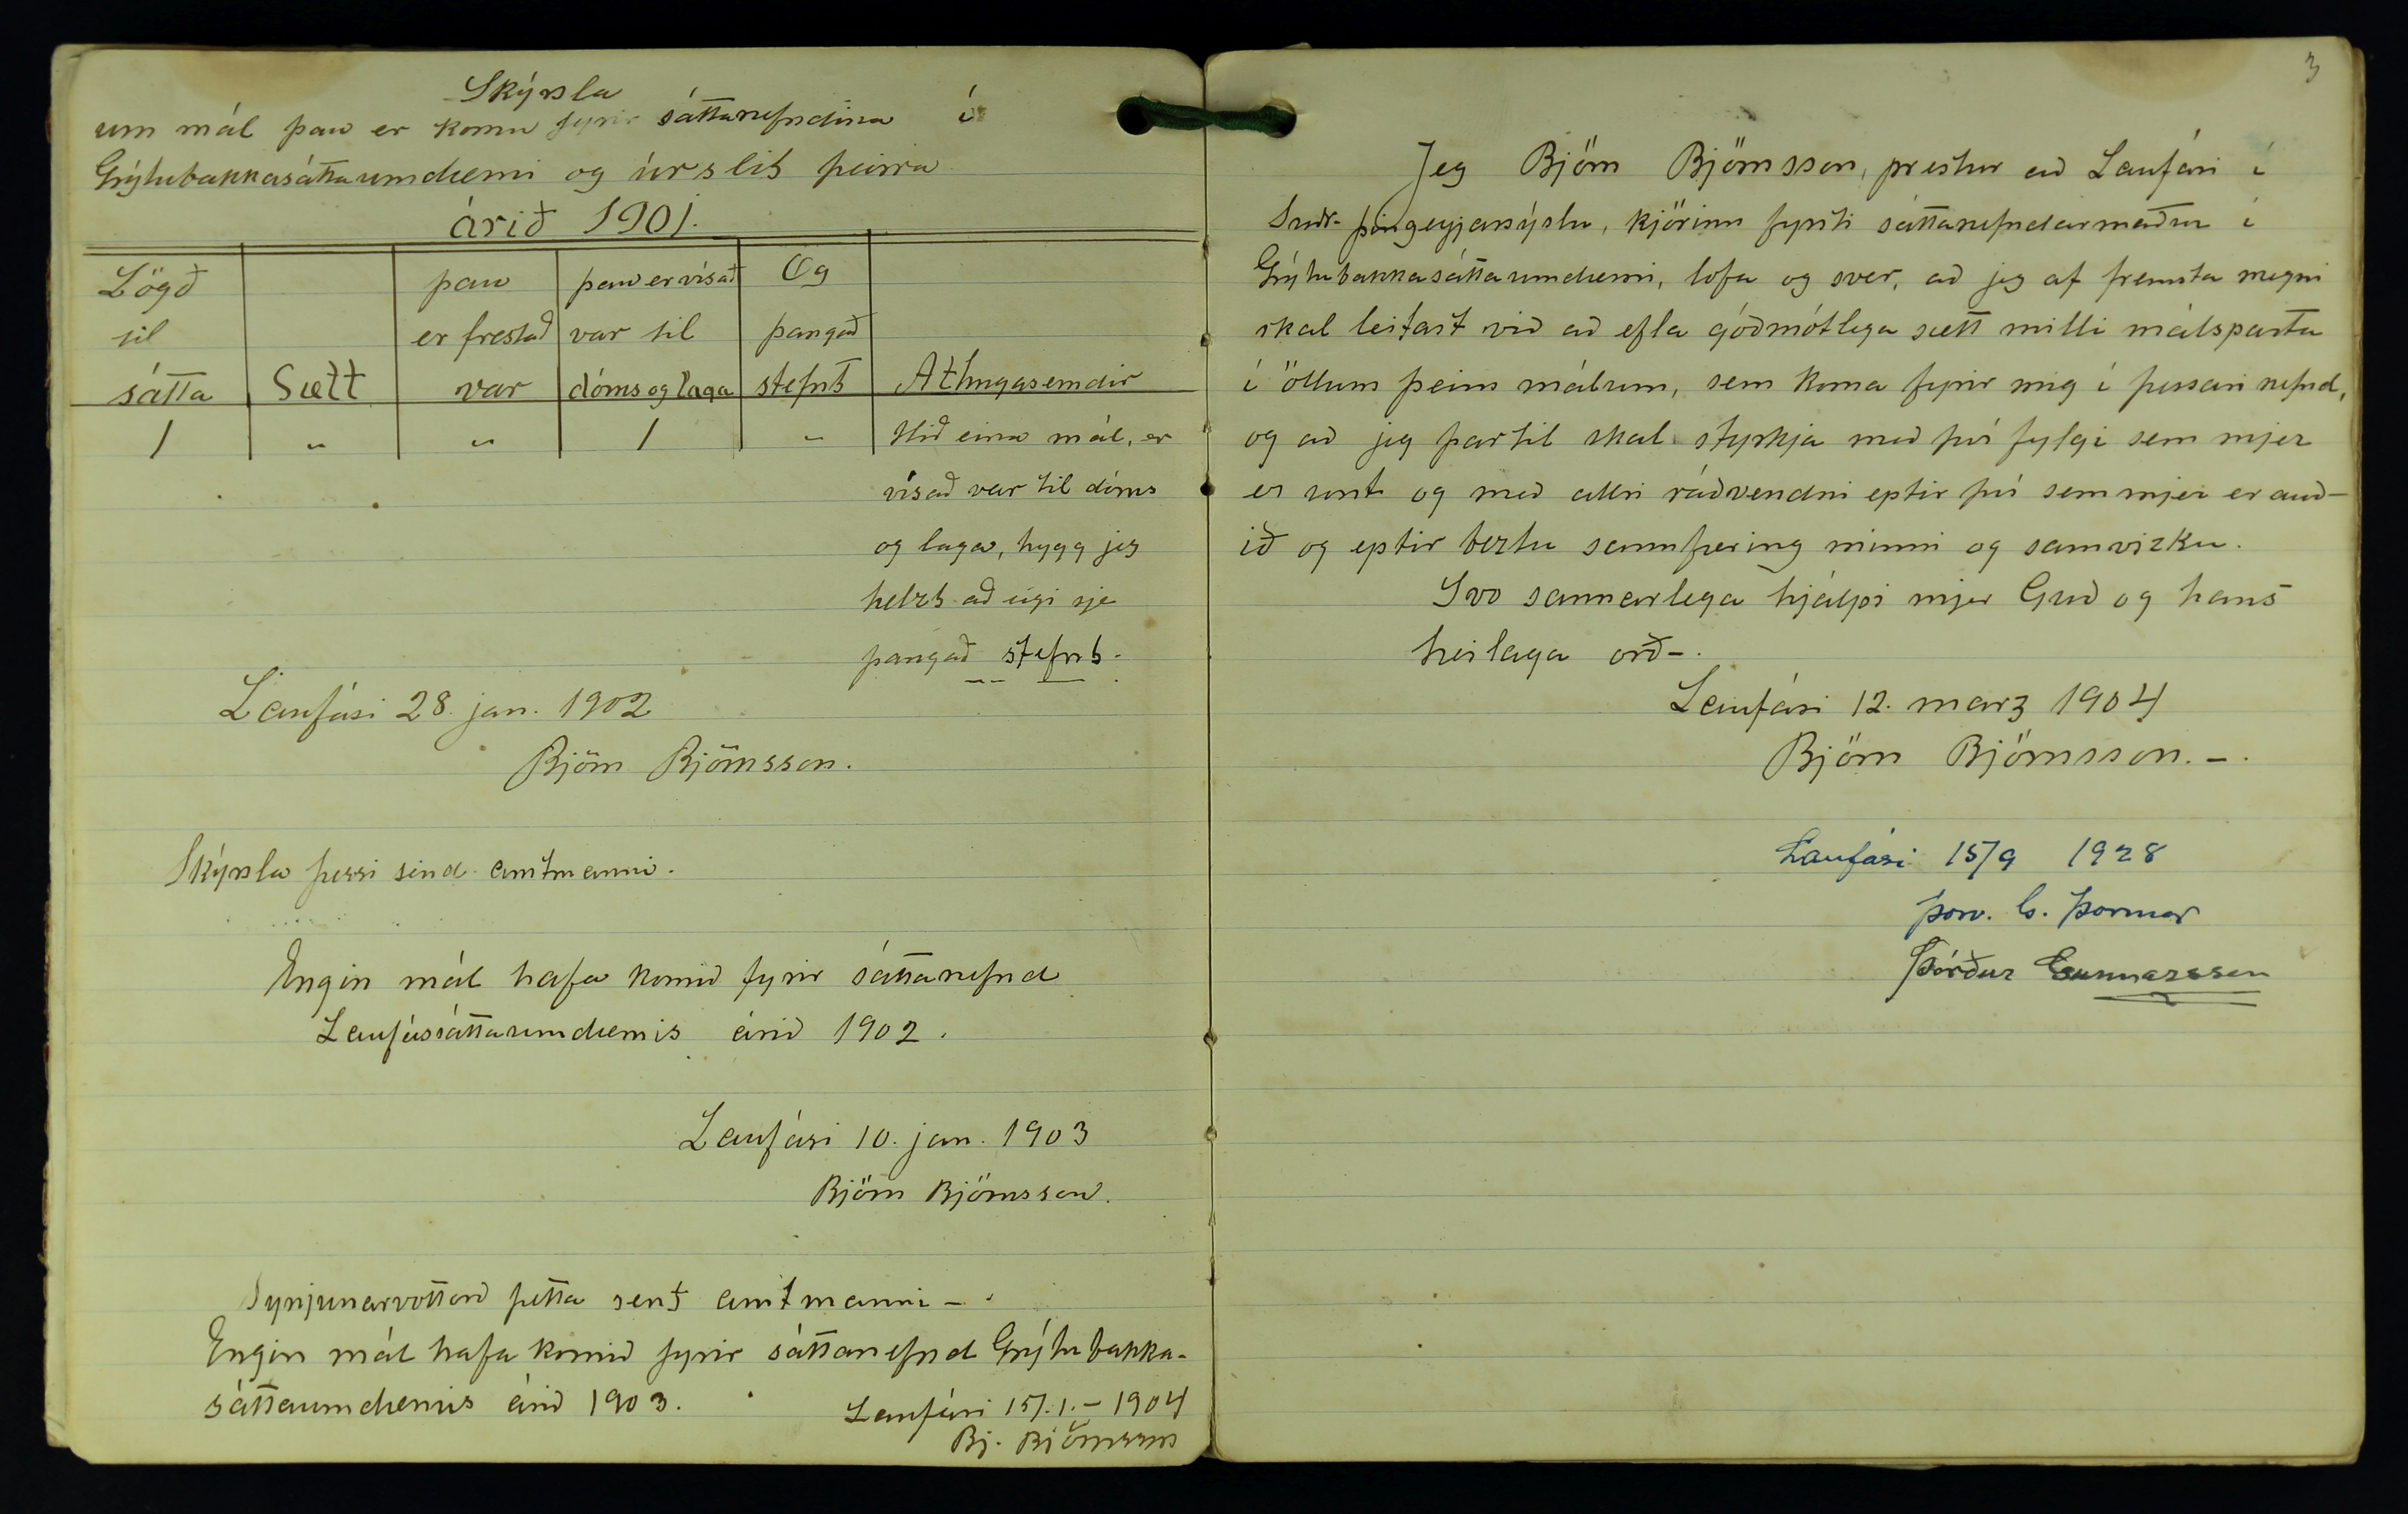 Skýrsla
um mál þau er komu fyrir sáttanefndina í
Grýtubakkasáttaumdæmi og úrslit þeirra
árið 1901.
Lögð til sátta | Sætt | þau er frestað var | þau er vísað var til dóms og laga | Og þangað stefnt | Athugasemdir
1 | " | " | 1 | " | Hið eina mál, er
vísað var til dóms
og laga, hygg jeg
helzt að eigi sje
þangað stefnt.
Laufási 28. jan. 1902
Björn Björnsson.
Skýrsla þessi send amtmanni.
Engin mál hafa komið fyrir sáttanefnd
Laufássáttaumdæmis árið 1902.
Laufási 10. jan. 1903
Björn Björnsson.
Synjunarvottorð þetta sent amtmanni -
Engin mál hafa komið fyrir sáttanefnd Grýtubakka-
sáttaumdæmis árið 1903.
Laufási 15/.1.- 1904
Bj. Björnsson
3
Jeg Björn Björnsson, prestur að Laufási í
Suðr-Þingeyjarsýslu, kjörinn fyrsti sáttanefndarmaður í
Grýtubakkasáttaumdæmi, lofa og sver, að jeg af fremsta megni
skal leitast við að efla góðmótlega sætt milli málsparta
í öllum þeim málum, sem koma fyrir mig í þessari nefnd,
og að jeg þar til skal styrkja með því fylgi sem mjer
er unt og með allri ráðvendni eptir því sem mjer er auð-
ið og eptir beztu sannfæring minni og samvizku.
Svo sannarlega hjálpi mjer Guð og hans
heilaga orð-.
Laufási 12. marz 1904
Björn Björnsson.-.
Laufási 15/9 1928
Þorv. G. Þormar
Þórður Gunnarsson